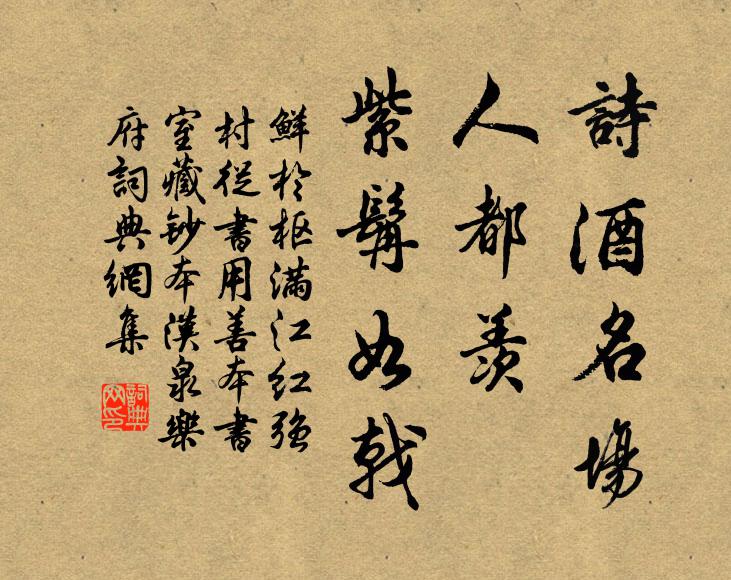 詩酒名場
人都羨
紫髯如戟
鮮於枢滿江紅強
村從書用善本書
室藏鈔本漢泉樂
府詞典網集
詞典
网印